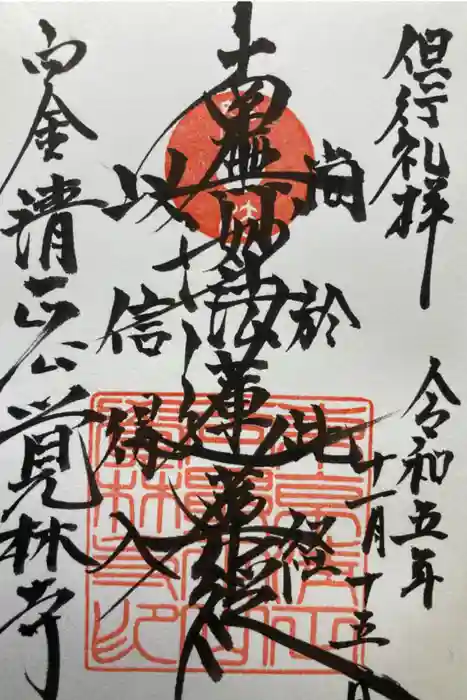 但行礼拝
令和五年
十一月十五日
尚於此経
南無妙法蓮華経
以信得入
白金 清正公 覚林寺